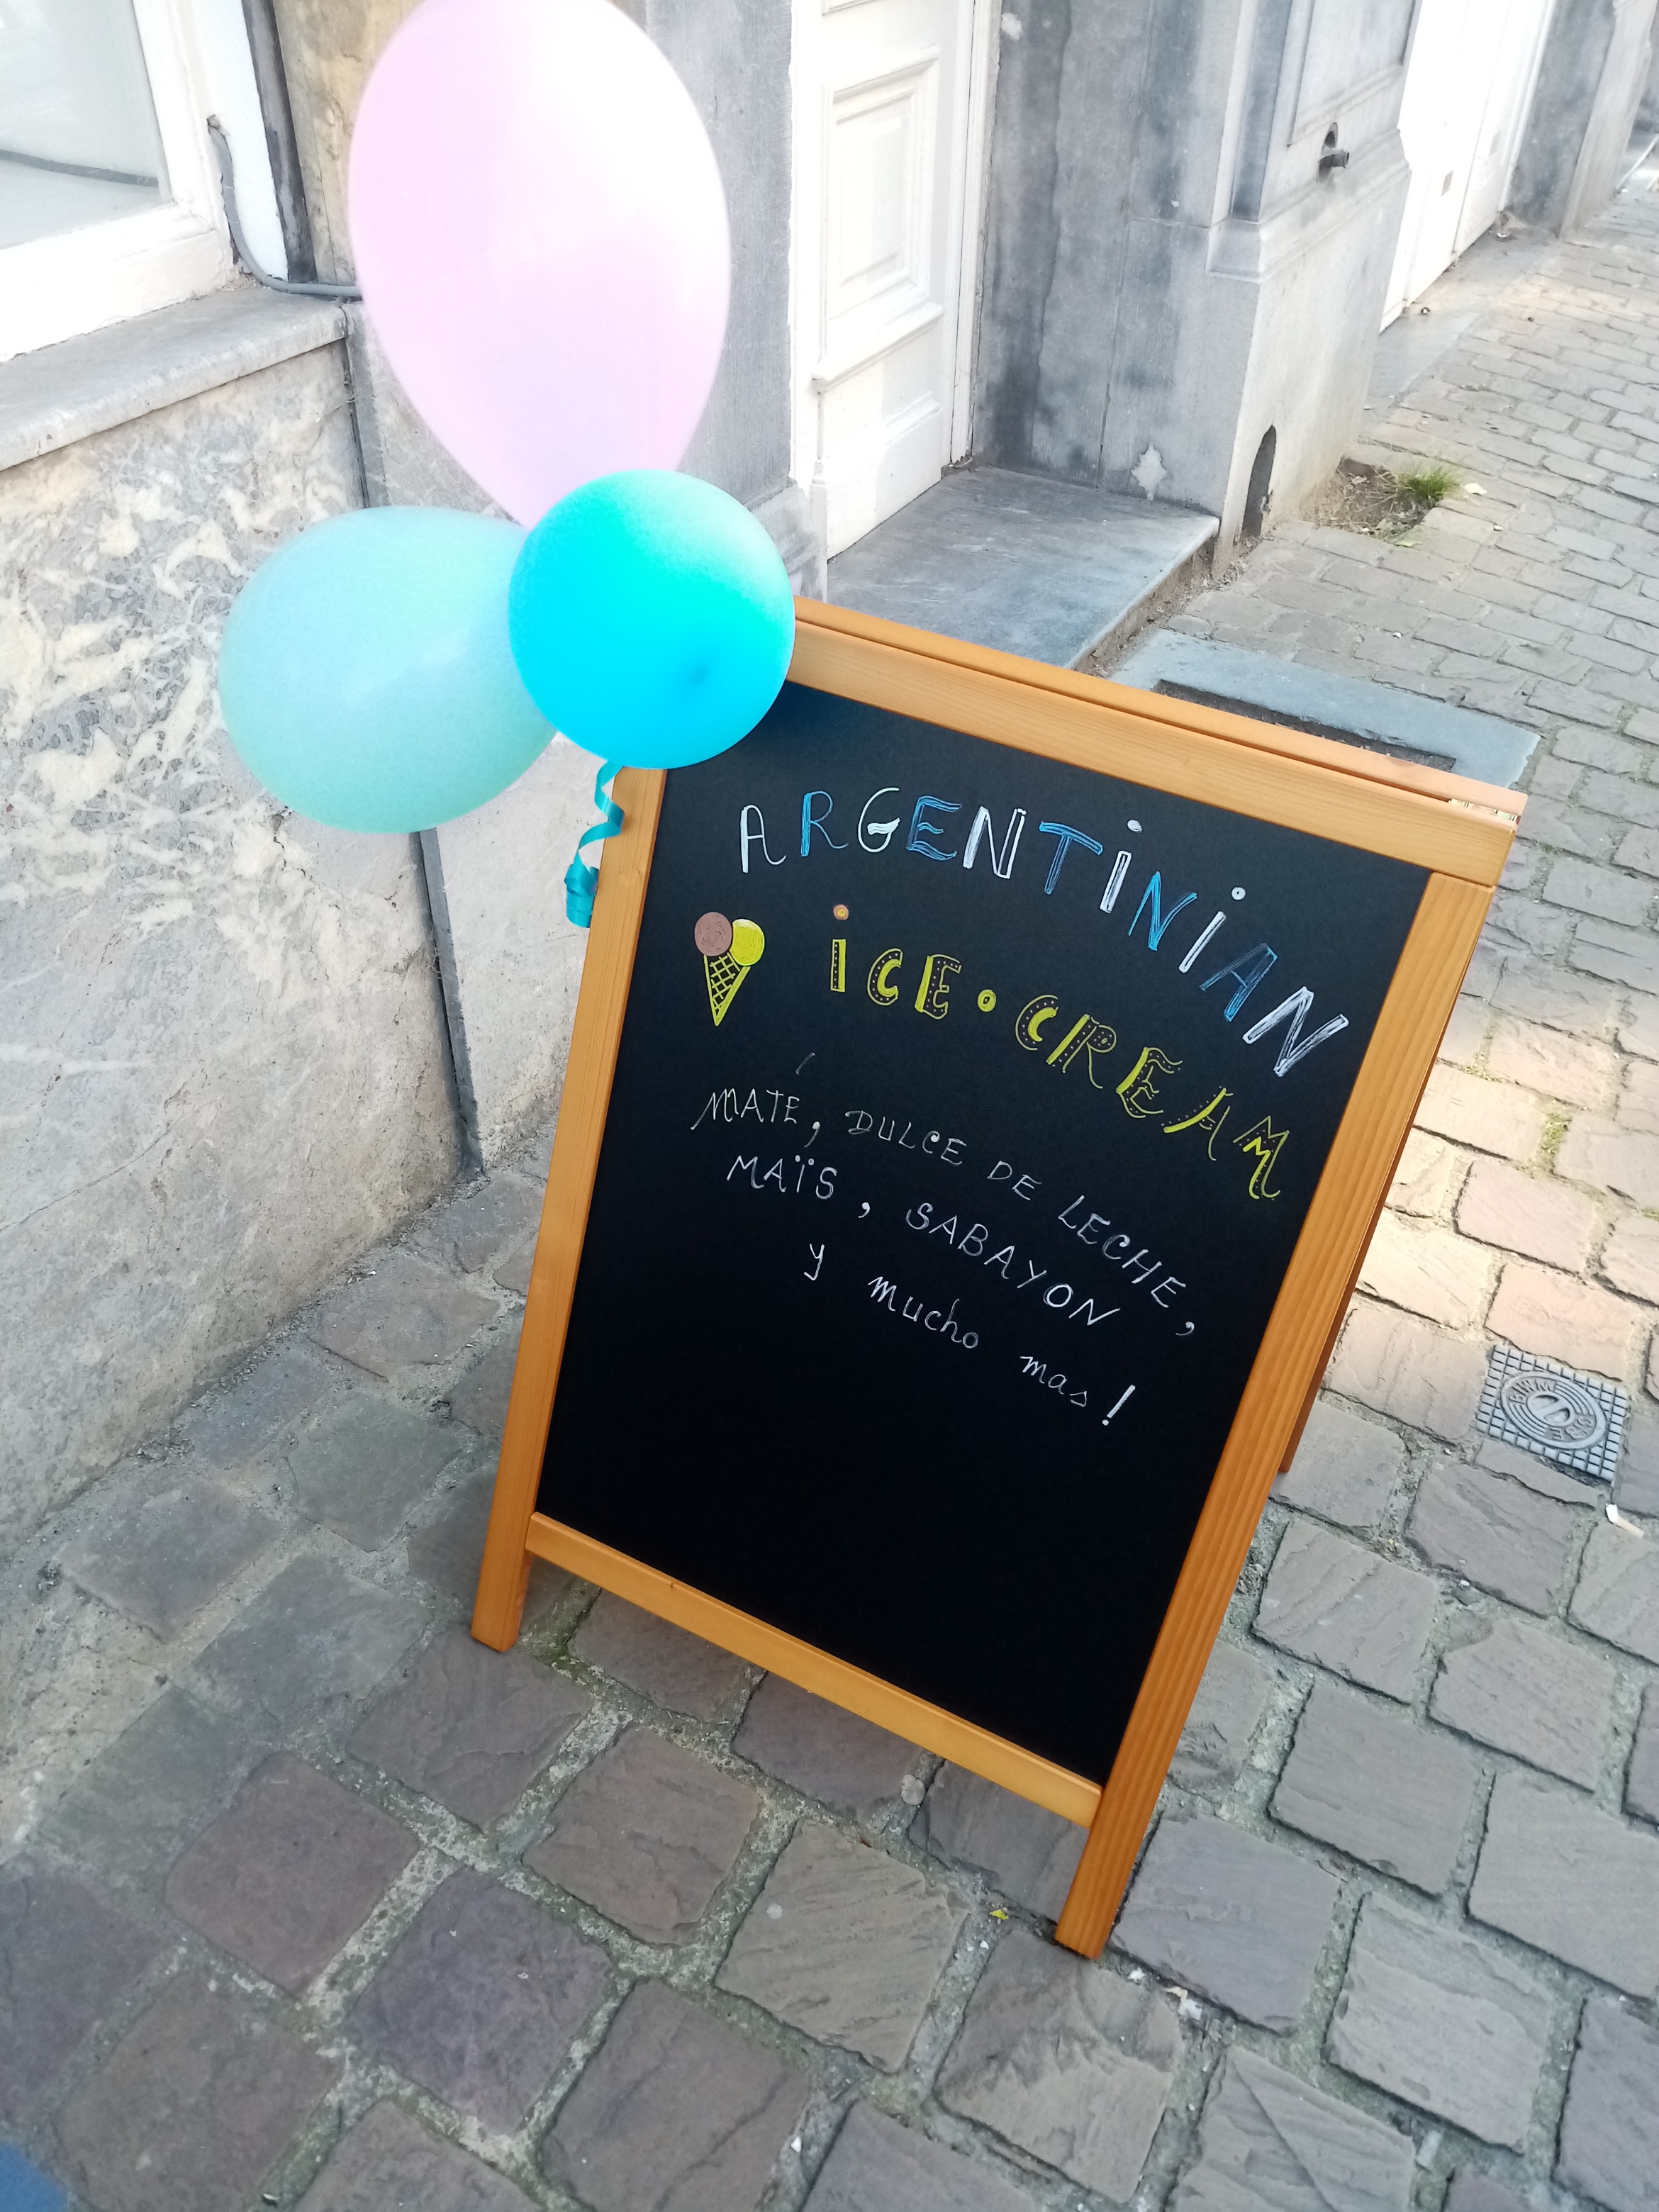 ARGENTINIAN
ICE•CREAM
MATÉ, DULCE DE LECHE,
MAÏS, SABAYON
y mucho mas!